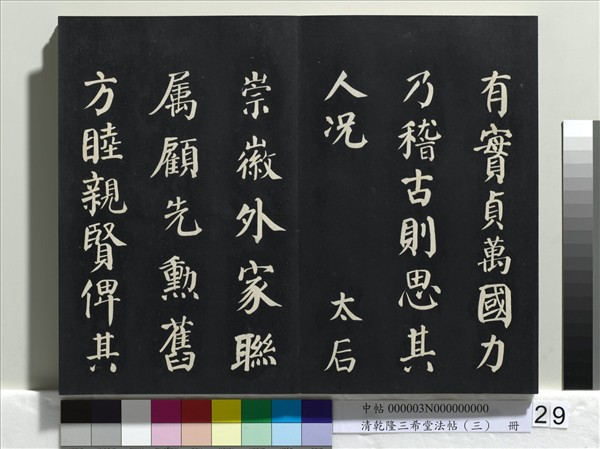 有實貞萬國力
乃稽古則思其
人况 太后
崇徽外家聯
属顧先勲舊
方睦親賢俾其
中帖 000003N000000000
清乾隆三希堂法帖（三） 冊
29